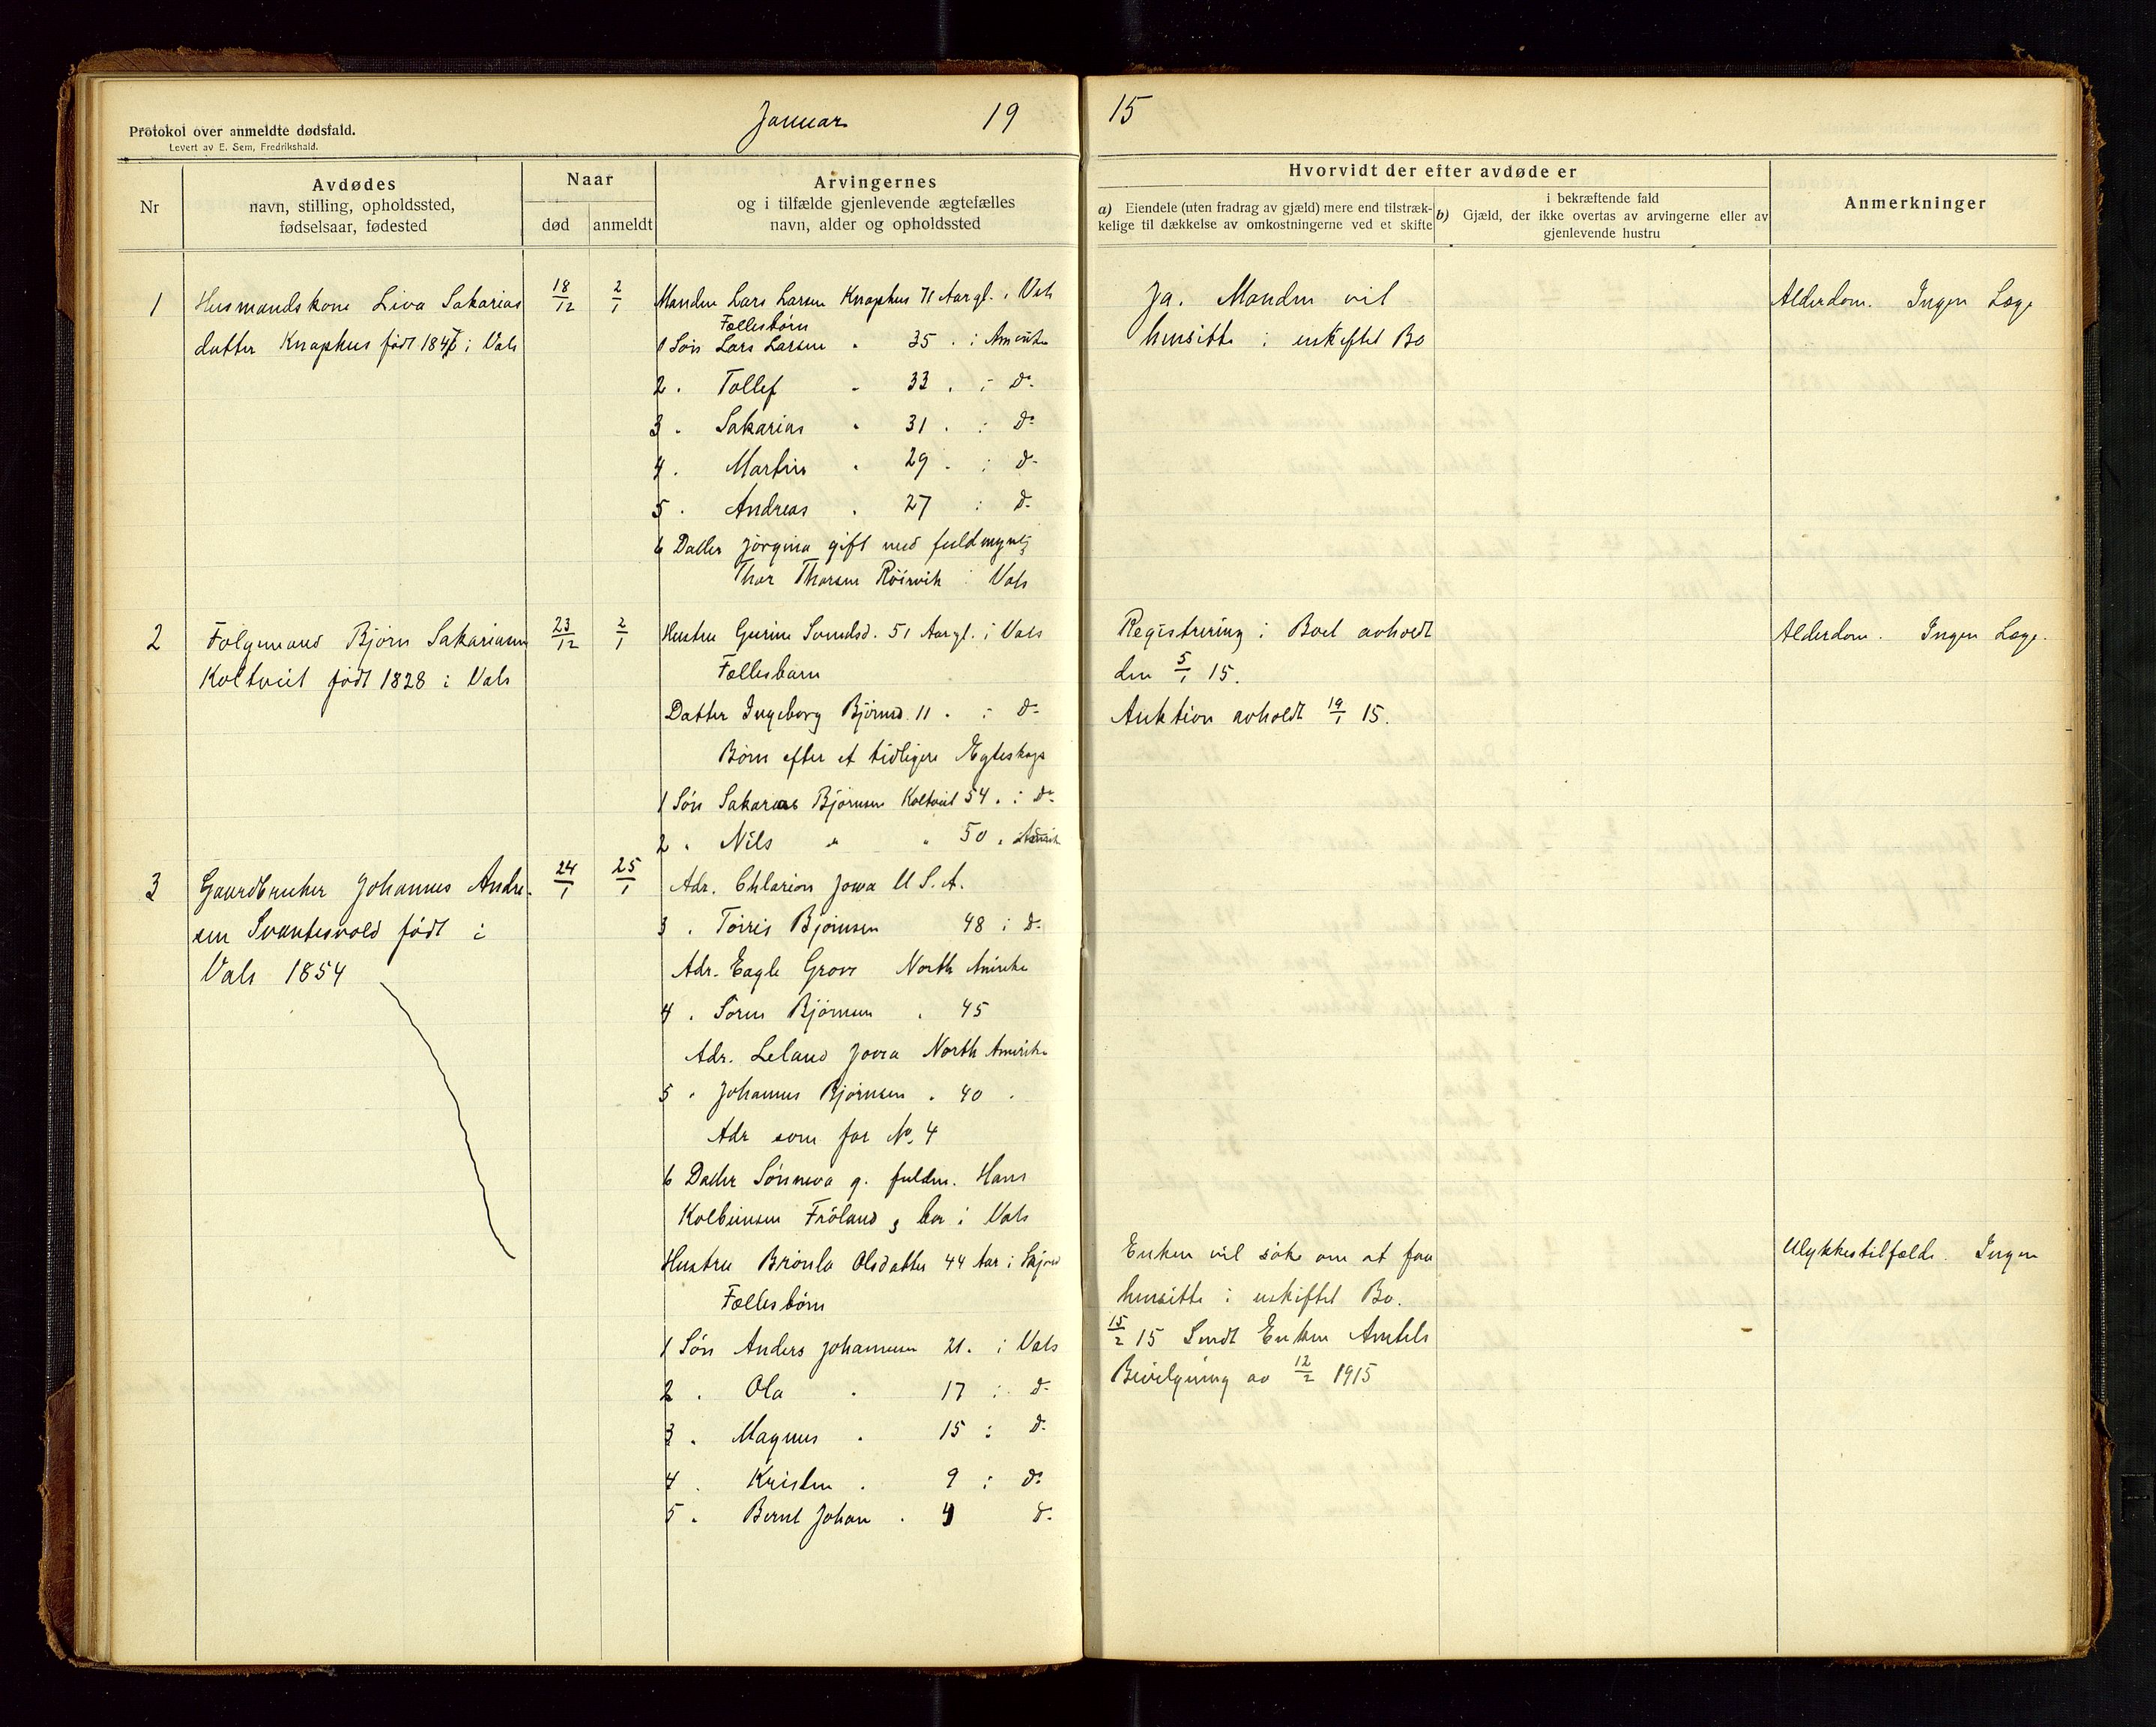 Januar 19 15
Protokol over anmeldte dødsfald.
Levert av E. Sem, Fredrikshald.
Nr
Avdødes
navn, stilling, opholdssted,
fødselsaar, fødested
Naar
død
anmeldt
Arvingernes
og i tilfælde gjenlevende ægtefælles
navn, alder og opholdssted
Hvorvidt der efter avdøde er
a) Eiendele (uten fradrag av gjæld) mere end tilstræk-
kelige til dækkelse av omkostningerne ved et skifte
i bekræftende fald
b) Gjæld, der ikke overtas av arvingerne eller av
gjenlevende hustru
Anmerkninger
1 Husmandskone Liva Sakarias
datter Knaphus født 184 i Vats
18/12 2/1
Manden Lars Larsen Knaphus 71 Aar gl. i Vats
Fællesbørn
1 Søn Lars Larsen " 35 . i Amerika
2 . Tollef " 33 . i do
3 . Sakarias " 31 . i do
4 . Martin " 29 . i do
5 . Andreas " 27 i do
6 Datter Jørgina gift med fuldmyndig
Thor Thorsen Röirvik i Vats
Ja. Manden vil
hensitte i uskiftet Bo
Alderdom. Ingen Læge
2 Følgemand Bjørn Sakariasen
Koltveit født 1828 i Vats
23/12 2/1
Hustru Gurine Svendsd. 51 Aar gl. i Vats
Fællesbarn
Datter Ingeborg Bjørnsd. 11 . i do
Børn efter et tidligere Egteskap
1 Søn Sakarias Bjørnsen Koltveit 54 . i do
2 . Nils " " 50 . i Amerika
Adr. Chlarion Jowa U.S.A.
3 . Torris Bjørnsen 48 i do
Adr. Eagle Grove North Amerika
4 . Sören Bjørnsen . 45
Adr. Leland Jowa North Amerika
5 . Johannes Bjørnsen . 40 .
Adr som for No. 4
6 Datter Sönneva g. fuldm. Hans
Kolbeinsen Fröland, bor i Vats
Registrering i Boet avholdt
den 5/1 15.
Auktion avholdt 19/1 15.
Alderdom. Ingen Læge.
3 Gaardbruker Johannes Andre-
sen Svantesvold født i
Vats 1854
24/1 25/1
Hustru Brönla Olsdatter 44 Aar i Skjold
Fællesbörn
1 Søn Anders Johannesen 21. i Vats
2 . Ola . 17 i do
3 . Magnus . 15 i do
4 . Kristen . 9 i do
5 . Bernt Johan . 4 do
Enken vil söke om at faa
hensitte i uskiftet Bo.
15/2 15 Sendt Enken Amtets
Bevilgning av 12/2 1915
Ulykkestilfælde. Ingen